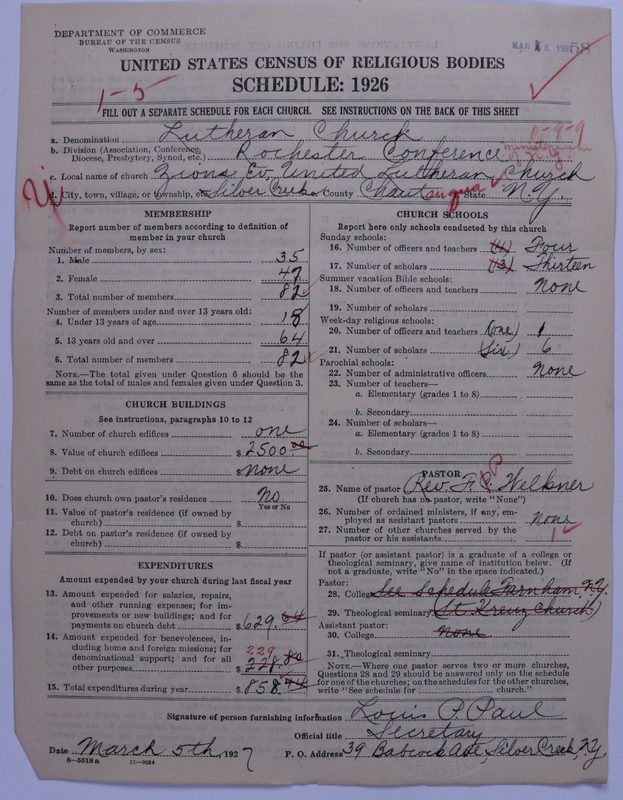 DEPARTMENT OF COMMERCE
BUREAU OF THE CENSUS
WASHINGTON
MAR 8 192
58
UNITED STATES CENSUS OF RELIGIOUS BODIES
SCHEDULE: 1926
1-5
FILL OUT A SEPARATE SCHEDULE FOR EACH CHURCH. SEE INSTRUCTIONS ON THE BACK OF THIS SHEET
a. Denomination Lutheran Church
b. Division (Association, Conference, Diocese, Presbytery, Synod, etc.) Rochester Conference
c. Local name of church Zions Ev. United Lutheran Church
d. City, town, village, or township, Silver Creek County Chautauqua State N.Y.
MEMBERSHIP
Report number of members according to definition of
member in your church
Number of members, by sex:
1. Male 35
2. Female 47
3. Total number of members 82
Number of members under and over 13 years old:
4. Under 13 years of age 18
5. 13 years old and over 64
6. Total number of members 82
NOTE.—The total given under Question 6 should be the
same as the total of males and females given under Question 3.
CHURCH BUILDINGS
See instructions, paragraphs 10 to 12
7. Number of church edifices one
8. Value of church edifices $ 2500 00
9. Debt on church edifices $ none
10. Does church own pastor's residence No
Yes or No
11. Value of pastor's residence (if owned by
church) $
12. Debt on pastor's residence (if owned by
church) $
EXPENDITURES
Amount expended by your church during last fiscal year
13. Amount expended for salaries, repairs,
and other running expenses; for im-
provements or new buildings; and for
payments on church debt $ 629.64
14. Amount expended for benevolences, in-
cluding home and foreign missions; for 229
denominational support; and for all
other purposes $ 228.80
15. Total expenditures during year $ 858.44
CHURCH SCHOOLS
Report here only schools conducted by this church
Sunday schools:
16. Number of officers and teachers (4) Four
17. Number of scholars (13) Thirteen
Summer vacation Bible schools:
18. Number of officers and teachers none
19. Number of scholars
Week-day religious schools:
20. Number of officers and teachers (one) 1
21. Number of scholars (Six) 6
Parochial schools:
22. Number of administrative officers none
23. Number of teachers—
a. Elementary (grades 1 to 8)
b. Secondary
24. Number of scholars—
a. Elementary (grades 1 to 8)
b. Secondary
PASTOR
25. Name of pastor Rev. Welkner
(If church has no pastor, write "None")
26. Number of ordained ministers, if any, em-
ployed as assistant pastors None
27. Number of other churches served by the
pastor or his assistants 1
If pastor (or assistant pastor) is a graduate of a college or
theological seminary, give name of institution below. (If
not a graduate, write "No" in the space indicated.)
Pastor:
28. College See Schedule Farnham N.Y.
29. Theological seminary (St. Kreuz Church)
Assistant pastor:
30. College None
31. Theological seminary
NOTE.—Where one pastor serves two or more churches,
Questions 28 and 29 should be answered only on the schedule
for one of the churches; on the schedules for the other churches,
write "See schedule for church."
Signature of person furnishing information Louis P. Paul
Official title Secretary
Date March 5th, 1927 P. O. Address 39 Babcock Ave, Silver Creek, N.Y.
8-5518a 11-9054